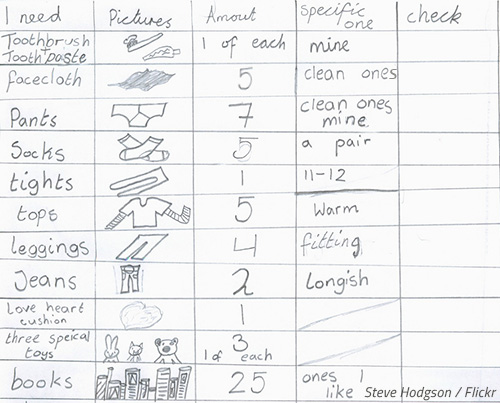 I need Pictures Amout specific one check
Toothbrush + Toothpaste 1 of each mine
facecloth 5 clean ones
Pants 7 clean ones mine
Socks 5 a pair
tights 1 11-12
tops 5 Warm
leggings 4 fitting
Jeans 2 Longish
Love heart cushion 1
three speical toys 3 1 of each
books 25 ones I like
Steve Hodgson / Flickr